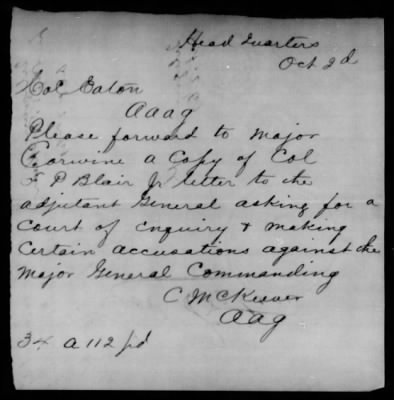 Head Quarters
Oct 2d
Col Eaton
aaag
Please forward to major
Corwine a Copy of Col
F P Blair Jr letter to the
adjutant General asking for a
Court of Enquiry & making
Certain accusations against the
Major General Commanding
C McKeever
aag
34 a 112 pd